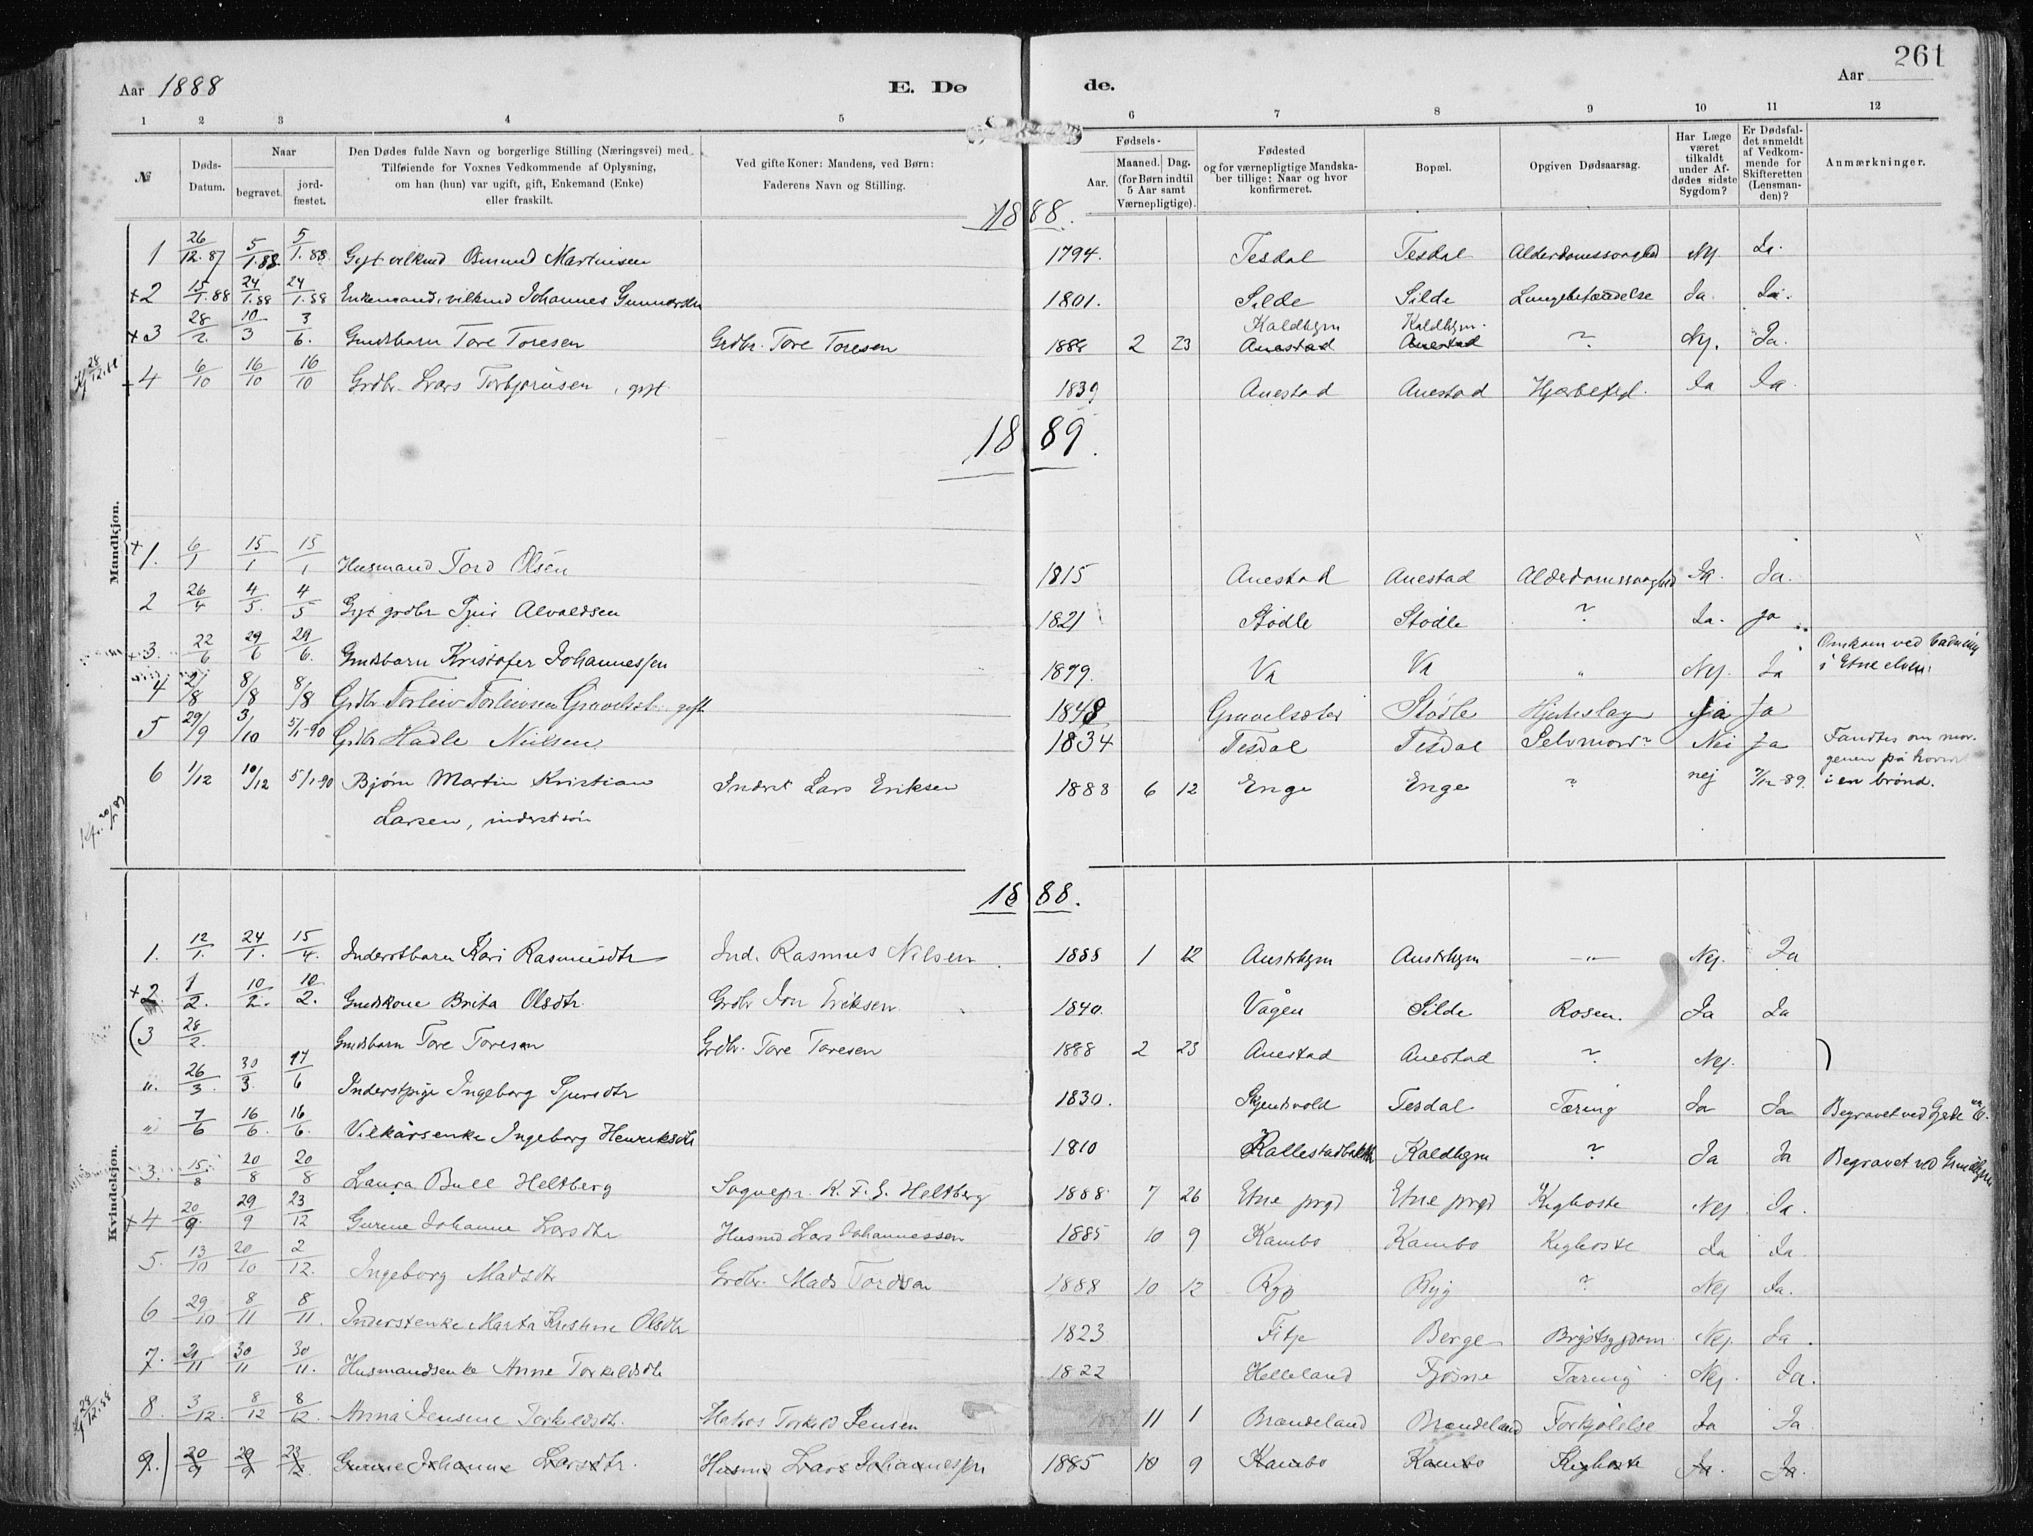 261
Aar 1888
E. Dø
de.
Aar
1 2 3 4 5 6 7 8 9 10 11 12
№
Døds-Datum.
Naar begravet. jordfæstet.
Den Dødes fulde Navn og borgerlige Stilling (Næringsvei) med Tilføiende for Voxnes Vedkommende af Oplysning, om han (hun) var ugift, gift, Enkemand (Enke) eller fraskilt.
Ved gifte Koner: Mandens, ved Børn: Faderens Navn og Stilling.
Fødsels-
Aar. Maaned. Dag. (for Børn indtil 5 Aar samt Værnepligtige).
Fødested og for værnepligtige Mandskaber tillige: Naar og hvor konfirmeret.
Bopæl.
Opgiven Dødsaarsag.
Har Læge været tilkaldt under Afdødes sidste Sygdom?
Er Dødsfaldet anmeldt af Vedkommende for Skifteretten (Lensmanden)?
Anmærkninger.
Mandkjøn.
1888.
1 26/12.87 5/1.88 5/1.88 Gift vilkmd Osmund Martinisen 1794. Tesdal Tesdal Alderdomssvaghed Nej. Ja.
+2 15/1.88 24/1.88 24/1.88 Enkemand, vilkmd Johannes Gunnarsen 1801. Silde Silde Lungebetændelse Ja. Ja.
Kaldhejm Kaldhejm.
+3 28/2. 10/3 3/6. Gmdsbarn Tore Toresen Grdbr. Tore Toresen 1888 2 23 Anestad Anestad ? Nej. Ja.
+4 6/10 16/10 16/10 Grdbr. Lars Torbjørnsen, gift 1839 Anestad Anestad Hjertefejl. Ja Ja.
1889.
+1. 6/1 15/1 15/1 Husmand Tord Olsen 1815 Anestad Anestad Alderdomssvaghed Ja. Ja.
2 26/4 4/5. 4/5 Gift grdbr Sjur Alvaldsen 1821 Stødle Stødle ? Ja. Ja
+3. 22/6 29/6 29/6. Gmdsbarn Kristofer Johannessen 1879. Va Va " Nej. Ja Omkom ved badning i Etne elven.
4 2/8 8/8 8/8 Grdbr Torleiv Torleivsen Gravelsæt. gift 1848 Gravelsæter Stødle Hjerteslag Ja Ja
5 29/9 3/10 5/1-90 Grdbr Hadle Nielsen 1834 Tesdal Tesdal Selvmord? Nei Ja Fandtes om morgenen på hovedet i en brønd.
6 1/12 10/12 5/1-90 Bjørn Martin Kristian Inderst Lars Eriksen 1888 6 12 Enge Enge ? nej 7/12-89.
Larsen, inderst søn
Kvindekjøn.
1888.
1. 12/1. 24/1. 15/4. Inderstbarn Kari Rasmusdtr Ind. Rasmus Nilsen 1888 1 12 Austrhejm Austrhejm —"— Nej. Ja
+2. 1/2. 10/2. 10/2. Gmdskone Brita Olsdtr Grdbr Jon Eriksen 1840. Vågen Silde Rosen. Ja Ja
(3 28/2. Gmdsbarn Tore Toresen Grdbr. Tore Toresen 1888 2 23 Anestad Anestad ? Nej. )
". 26/3. 30/3. 17/6 Inderstpige Ingeborg Sjursdtr 1830. Skjensvold Tesdal Tæring Ja Ja Begravet ved Gjerde K.
" 7/6 16/6. 16/6. Vilkårsenke Ingeborg Henriksdtr 1810 Kallestad Kaldhejm ? Ja Ja Begravet ved Grindhejm
3. 15/8 20/8 20/8 Laura Bull Heltberg Sognepr. K. F. E. Heltberg 1888 7 26 Etne prgd Etne prgd Kighoste Nej Ja.
+4 20/9. 29/9 23/12 Gurine Johanne Larsdtr Husmd Lars Johannessen 1885 10 9 Kambo Kambo Kighoste Ja Ja.
5. 13/10 20/10 2/12. Ingeborg Madsdtr Grdbr. Mads Tordsen 1888 10 12 Ryg Ryg ? Nej Ja.
6 29/10 8/11 8/11. Inderstenke Marta Kristine Olsdtr 1823 Fitje Berge Brystsygdom Nej. Ja.
7. 21/11 30/11 30/11. Husmandsenke Anne Torkelsdtr 1822 Helleland Fjøsne Tæring Nej. Ja.
8. 3/12. 8/12 8/12. Anna Jensine Torkildsdtr. Matros Torkild Jensen 1887 11 1 Brandeland Brandeland Forkjølelse Ja Ja.
9. 20/9 29/9 23/12. Gurine Johanne Larsdtr. Husmd Lars Johannessen 1885 10 9 Kambo Kambo Kighoste Ja. Ja.